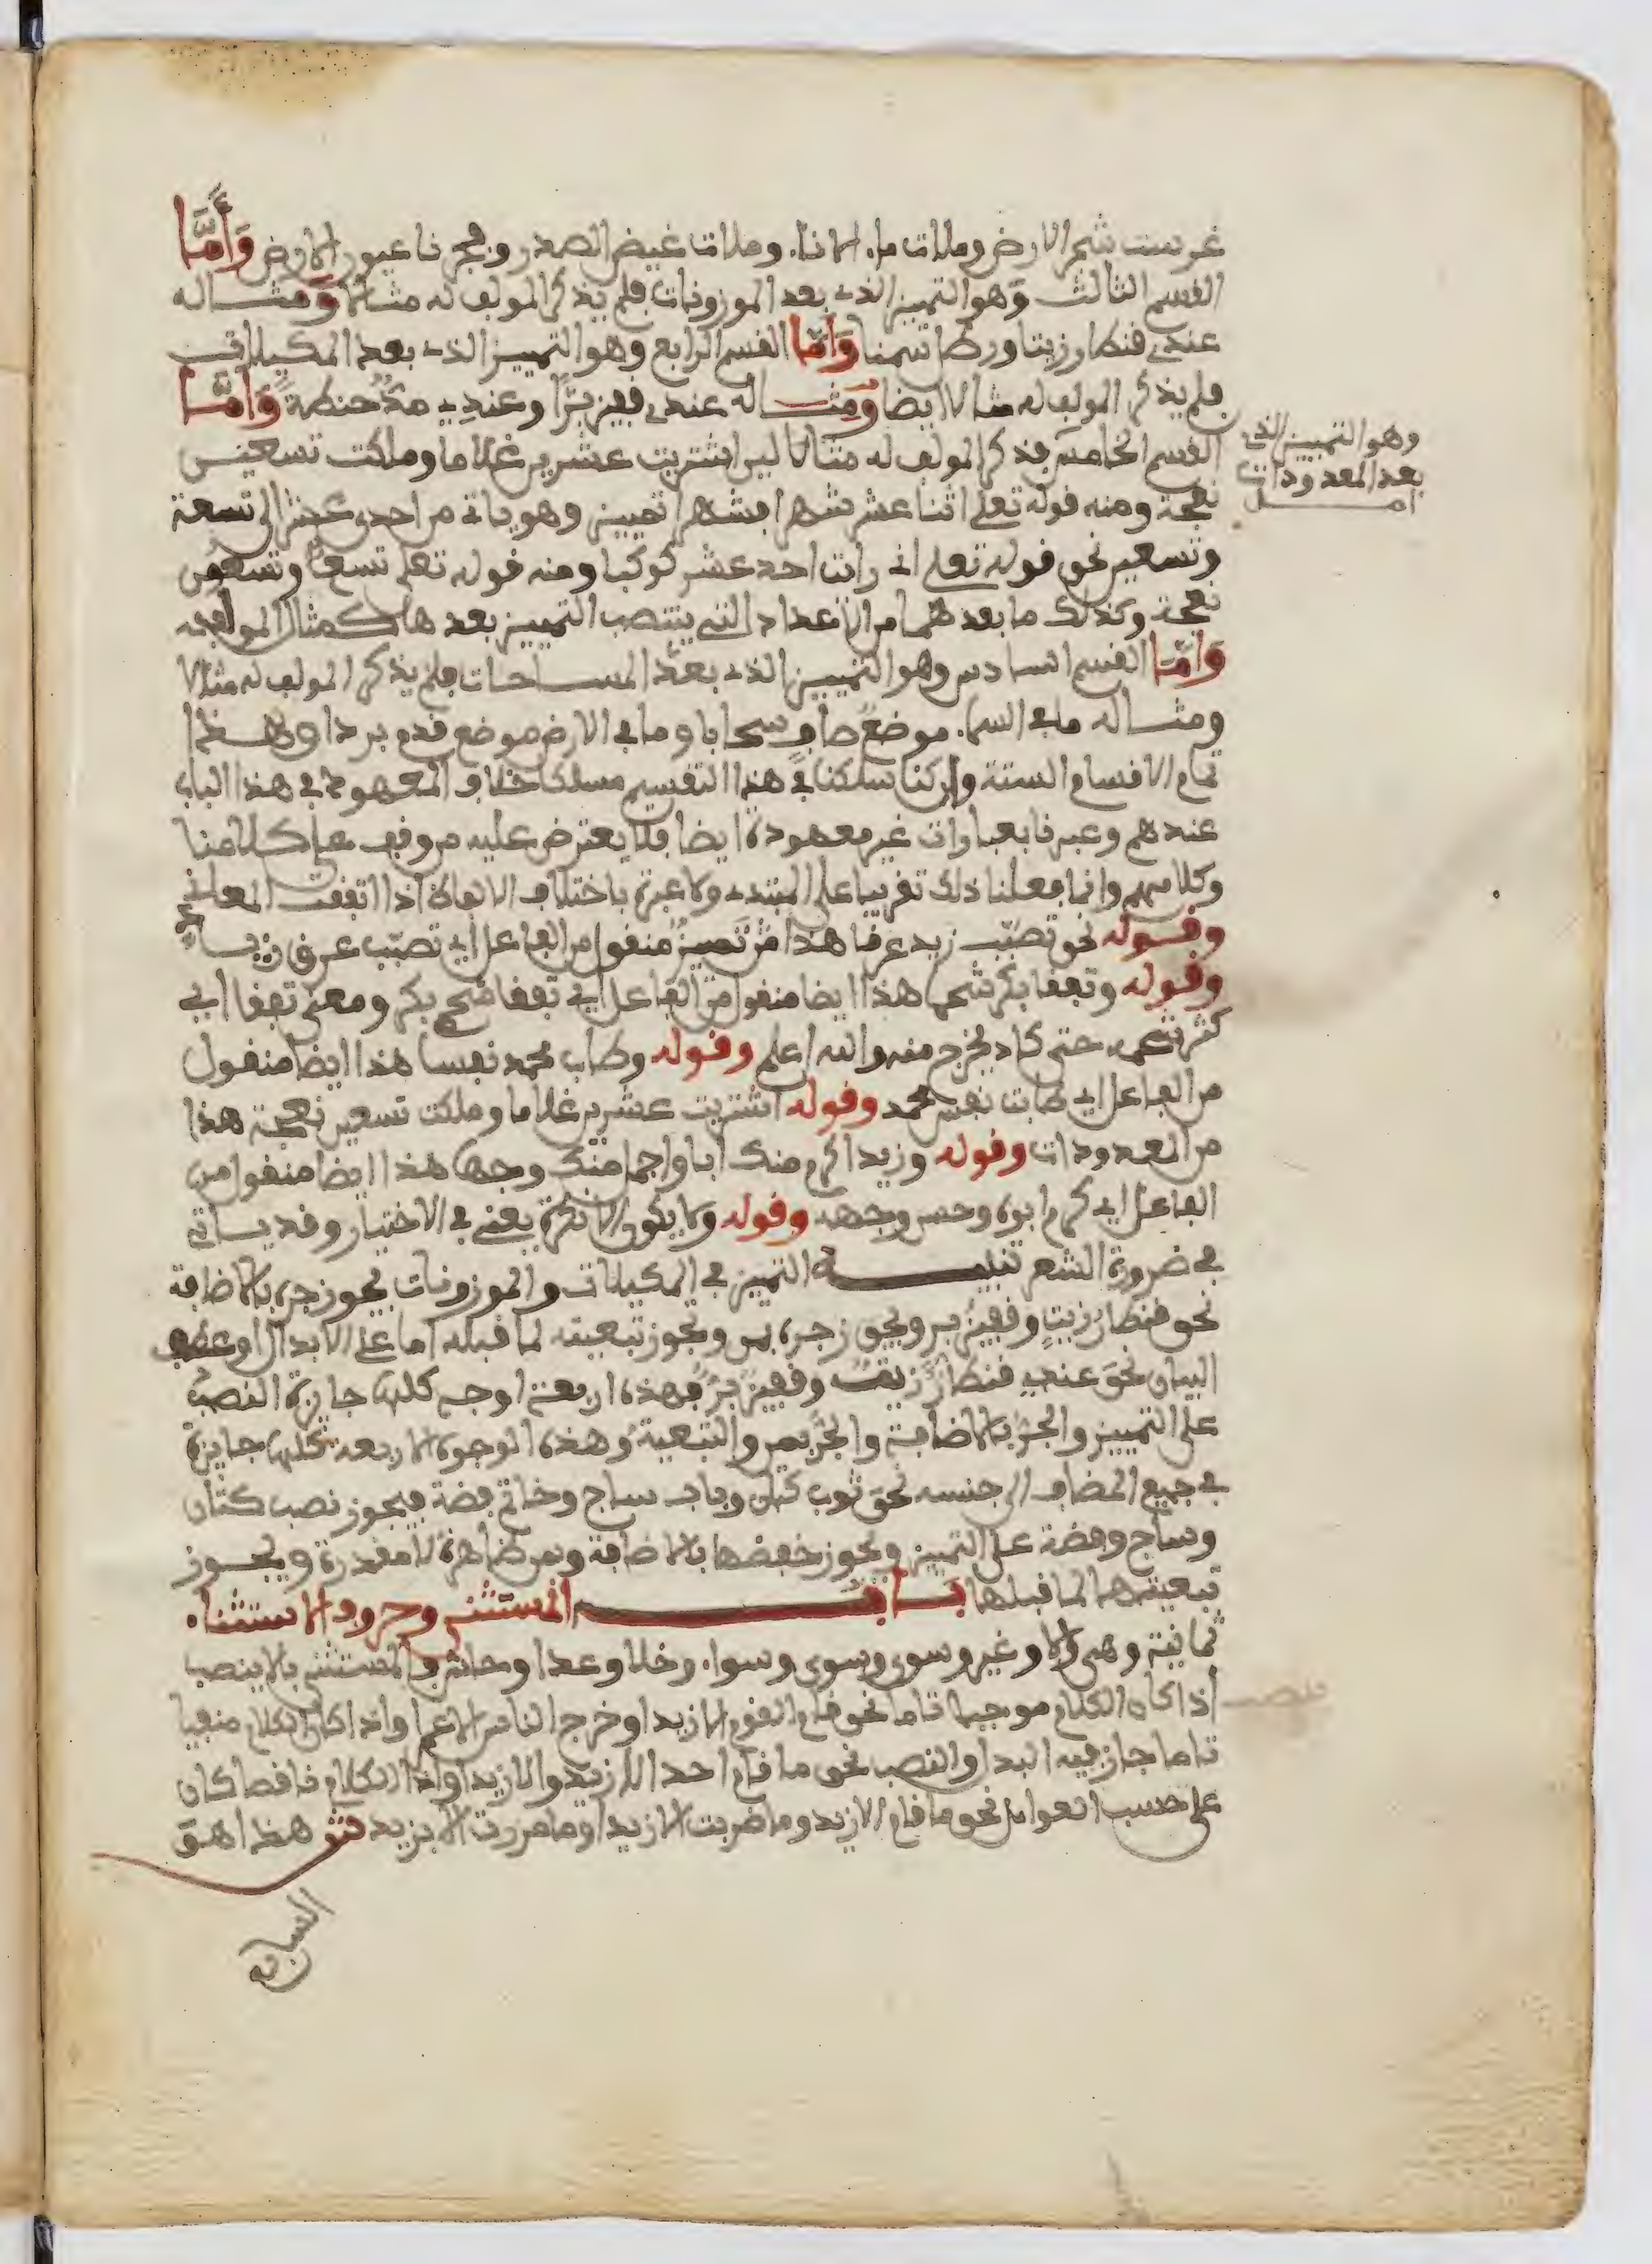 غرست شجر الارض وملات ماء الاناء وملات غيض الصدر وفجرنا عيون الارض وَأَمَّا
القسم الثالث وهو التمييز الذي بعد الموزونات فلم يذكر المولف له مثالا وَمثاله
عندي قنطار زيتا ورطل سمنا وَأمّا القسم الرابع وهو التمييز الذي بعد المكيلات
فلم يذكر المولف له مثالا ايضا وَمثاله عندي قفيز برّاً وعندي مدٌّ حنطةً وَأمَّا
القسم الخامس فذكر المولف له مثالا اشتريت عشرين غلاما وملكت تسعين
وهو التمييز الذي
بعد المعدودات
اصل
نعجة ومنه قوله تعلى اثنا عشر شهرا فشهرا تمييز وهو ياتي من احدى عشر الى تسعة
وتسعين نحو قوله تعلى اني رايت احد عشر كوكبا ومنه قوله تعلى تسعٌ وتسعون
نعجة وكذلك ما بعدهما من الاعداد التي ينتصب التمييز بعدها كمثال المولف
وَأمّا القسم السادس وهو التمييز الذي بعد المساحات فلم يذكر المولف له مثالا
ومثاله ما في السماء موضع سحابا وما في الارض موضع قدم بردا وهذا
تمام الاقسام الستة وان كنا سلكنا في هذا التقسيم مسلكا خلاف المعهود في هذا الباب
عندهم وعبرنا بعبارات غير معهودة ايضا فلا يعترض عليه من وقف على كلامنا
وكلامهم وانما فعلنا ذلك تقريبا على المبتدي ولا عبرة باختلاف الالفاظ اذا اتفقت المعاني
وقوله نحو تصبّب زيد عرقا هذا تمييز منقول من الفاعل اي تصبّب عرق زيد
وقوله وتفقا بكر شحما هذا ايضا منقول من الفاعل اي تفقا شحم بكر ومعنى تفقا اي
كثر شحمه حتى كاد يخرج منه والله اعلم وقوله وطاب محمد نفسا هذا ايضا منقول
من الفاعل اي طابت نفس محمد وقوله اشتريت عشرين غلاما وملكت تسعين نعجة هذا
من المعدودات وقوله وزيد اكرم منك ابا واجمل منك وجها هذا ايضا منقول من
الفاعل اي كرم ابوه وحسن وجهه وقوله ولا يكون الا نكرة يعني في الاختيار وقد ياتي
في ضرورة الشعر تنبيه التمييز في المكيلات والموزونات يجوز جره بالاضافة
نحو قنطار زيتٍ وقفيز بر ويجوز جره بمن ويجوز تبعيته لما قبله اما على الابدال او عطف
البيان نحو عندي قنطارٌ زيتٌ وقفيزٌ برٌّ فهذه اربعة اوجه كلها جايزة النصبُ
على التمييز والجرّ بالاضافة والجرّ بمن والتبعية وهذه الوجوه الاربعة كلها جايزة
في جميع المضاف الى جنسه نحو ثوب كتان وباب ساج وخاتم فضة فيجوز نصب كتان
وساج وفضة على التمييز ويجوز خفضها بالاضافة وبمن ظاهرة لا مقدرة ويجوز
تبعيتها لما قبلها بَاب المستثنى وحروف الاستثناء
ثمانية وهي الا وغير وسوى وسوى وسواء وخلا وعدا وحاشى فالمستثنى بالا ينصب
اذا كان الكلام موجبا تاما نحو قام القوم الا زيدا وخرج الناس الا عمرا واذا كان الكلام منفيا
تاما جاز فيه البدل والنصب نحو ما قام احد الا زيدٌ والا زيدا واذا الكلام ناقصا كان
على حسب العوامل نحو ما قام الا زيد وما ضربت الا زيدا وما مررت الا بزيد ش هذا هو